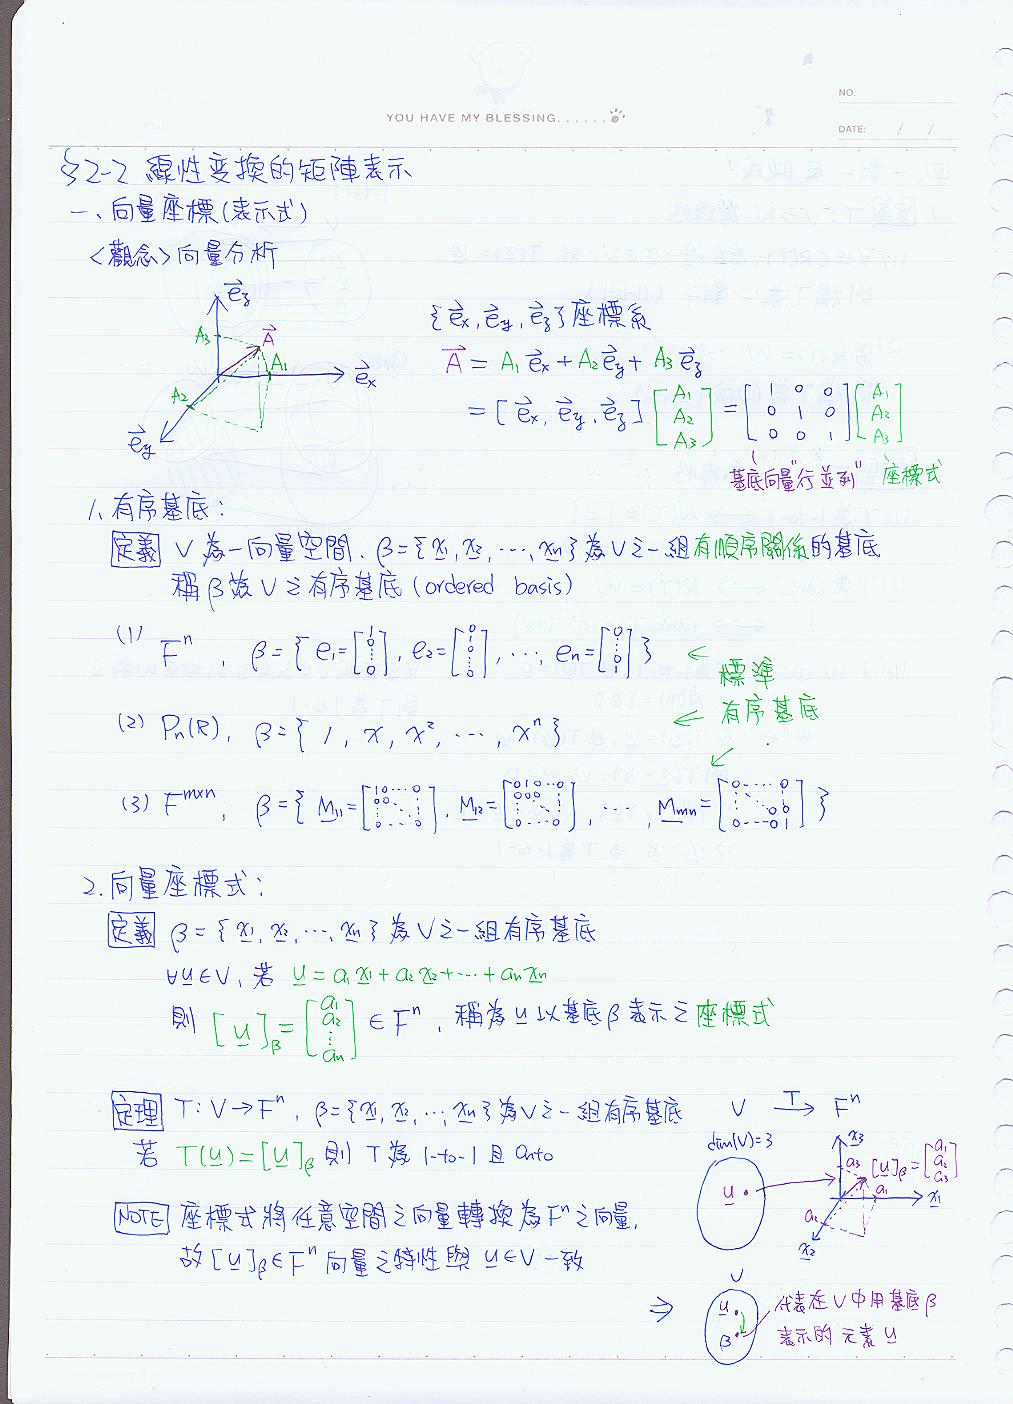 YOU HAVE MY BLESSING......
NO.
DATE: / /
§2-2 線性変換的矩陣表示
一、向量座標(表示式)
<觀念>向量分析
e⃗z
A3 A⃗
A1
e⃗x
A2
e⃗y
{e⃗x, e⃗y, e⃗z}座標系
A⃗ = A1 e⃗x + A2 e⃗y + A3 e⃗z
= [e⃗x, e⃗y, e⃗z] [A1 A2 A3] = [1 0 0; 0 1 0; 0 0 1] [A1 A2 A3]
基底向量"行並列" 座標式
1. 有序基底:
定義 V為一向量空間, β={x1, x2, ..., xn}為V之一組有順序關係的基底
稱β為V之有序基底(ordered basis)
(1) Fⁿ, β={ e1=[1 0 ⋮ 0], e2=[0 1 0 ⋮ 0], ..., en=[0 ⋮ 0 1] }
← 標準
(2) Pn(R), β={ 1, x, x², ..., xⁿ }
← 有序基底
(3) F^{m×n}, β={ M11=[1 0 ... 0; 0 0 ...; 0 ... 0], M12=[0 1 0 ... 0; 0 0 0 ...; 0 ... 0], ..., Mmn=[0 ... 0; ... 0; 0 ... 0 1] }
2. 向量座標式:
定義 β={x1, x2, ..., xn}為V之一組有序基底
∀u∈V, 若 u = a1x1 + a2x2 + ... + anxn
則 [u]β = [a1 a2 ⋮ an] ∈ Fⁿ, 稱為u以基底β表示之座標式
定理 T: V→Fⁿ, β={x1, x2, ..., xn}為V之一組有序基底
若 T(u)=[u]β 則 T為 1-to-1 且 onto
V T→ Fⁿ
dim(V)=3
u
x3
a3
[u]β=[a1 a2 a3]
a1
x1
a2
x2
NOTE 座標式將任意空間之向量轉換為Fⁿ之向量,
故[u]β∈Fⁿ向量之特性與 u∈V 一致
⇒
V
u
β
代表在V中用基底β
表示的 元素u